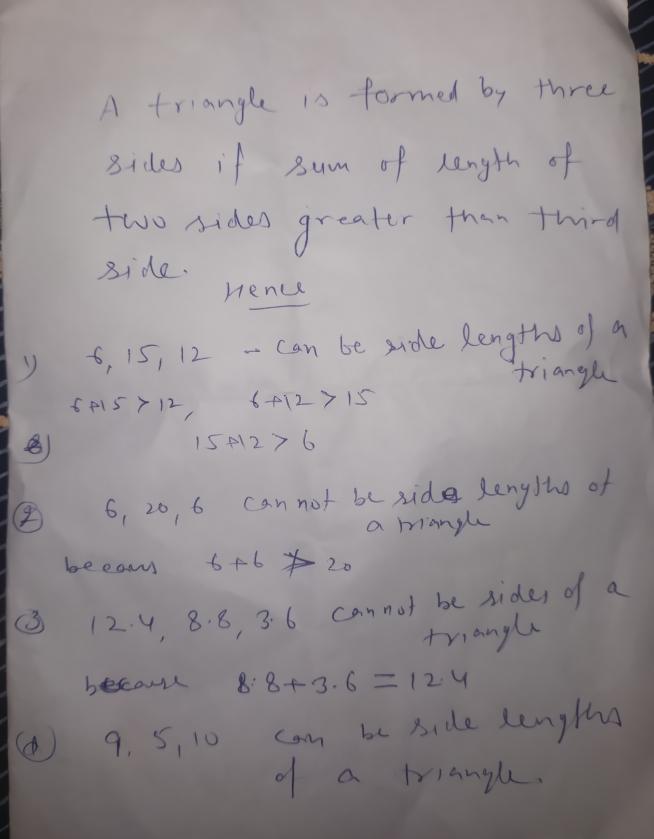 A triangle is formed by three
sides if sum of length of
two sides greater than third
side.
Hence
1) 6, 15, 12 - can be side lengths of a
triangle
6+15 > 12, 6+12 > 15
15+12 > 6
② 6, 20, 6 can not be side lengths of
a triangle
becaus 6+6 ≯ 20
③ 12.4, 8.8, 3.6 cannot be sides of a
triangle
because 8.8+3.6 = 12.4
④ 9, 5, 10 can be side lengths
of a triangle.